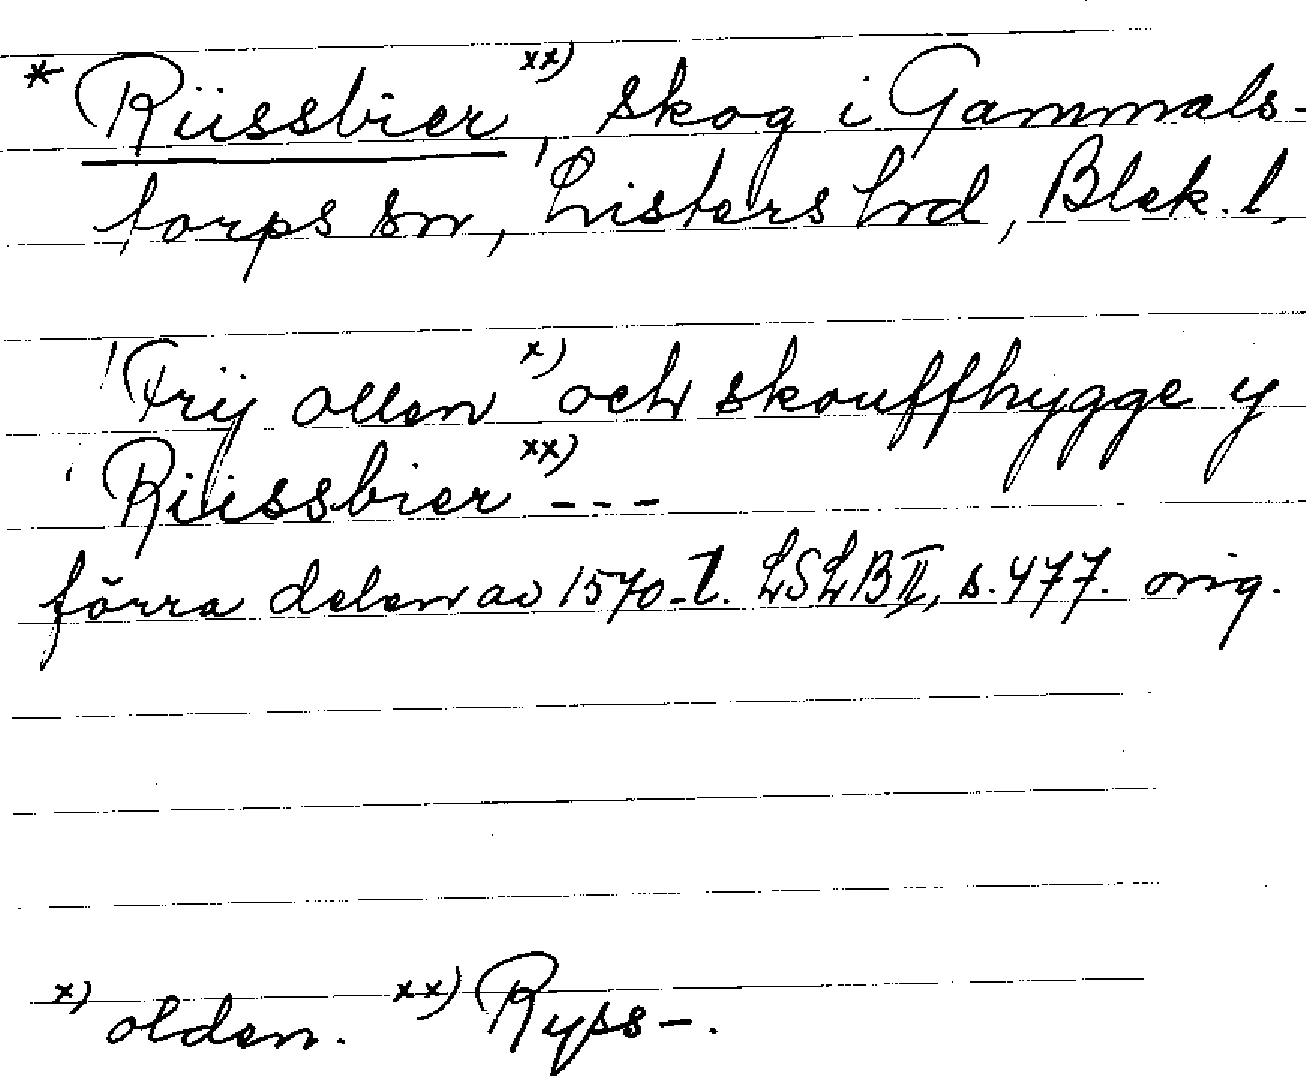 * Rüssbier xx), skog i Gammals-
torps sn, Listers hd, Blek. l.
Frij ollen x) och skouffhygge y
Rüssbier xx) - - -
förra delen av 1570-t. LSLB II, s. 477. orig.
x) olden. xx) Ryss-.